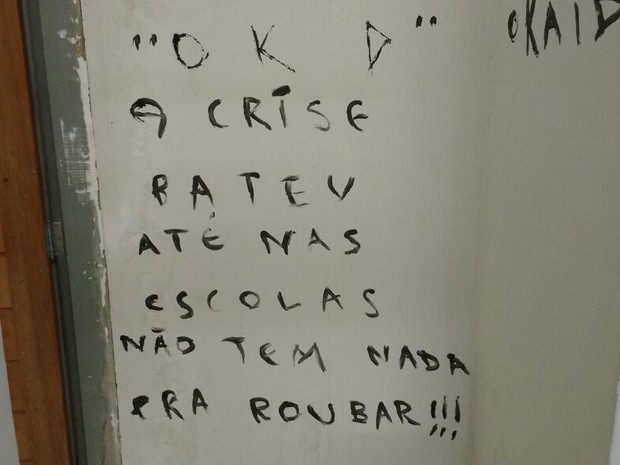 "O K D"
OKAID
A CRISE
BATEU
ATÉ NAS
ESCOLAS
NÃO TEM NADA
PRA ROUBAR!!!